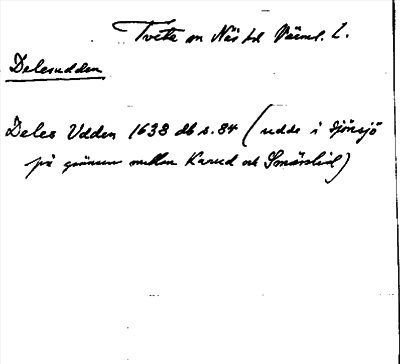 Tveta sn Näs hd Värml. L.
Delesudden
Deles Udden 1638 db s. 84 (udde i Djönsjö
på gränsen mellan Karud och Smårslid)